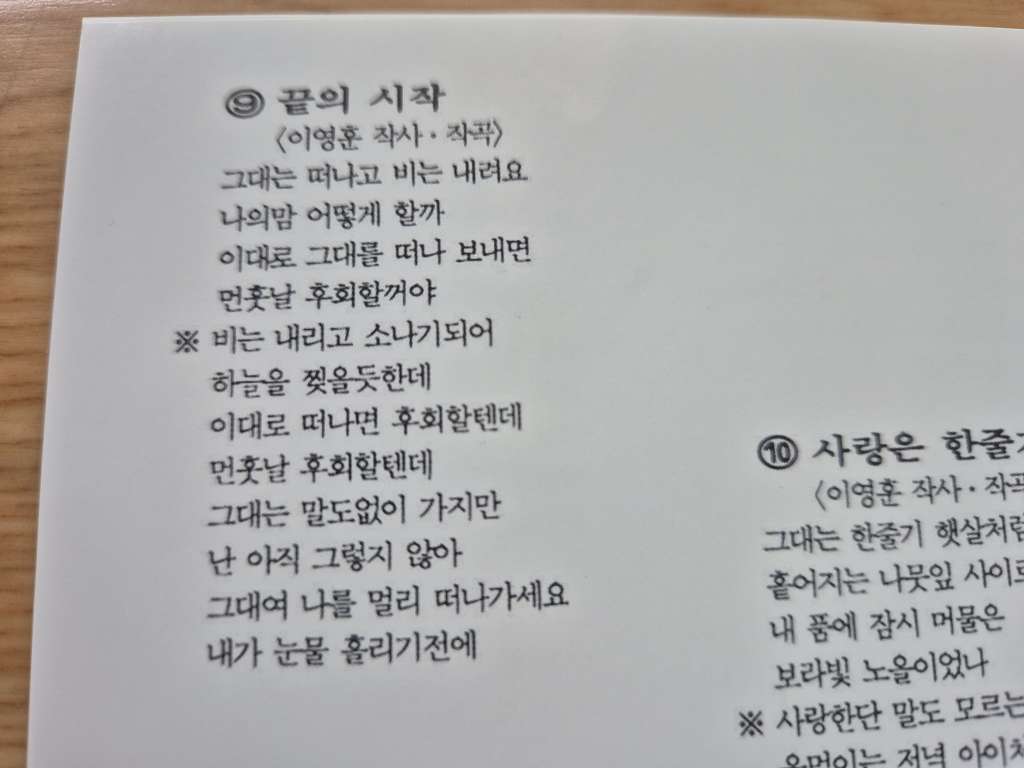 ⑨ 끝의 시작
〈이영훈 작사·작곡〉
그대는 떠나고 비는 내려요
나의맘 어떻게 할까
이대로 그대를 떠나 보내면
먼훗날 후회할꺼야
※ 비는 내리고 소나기되어
하늘을 찢을듯한데
이대로 떠나면 후회할텐데
먼훗날 후회할텐데
그대는 말도없이 가지만
난 아직 그렇지 않아
그대여 나를 멀리 떠나가세요
내가 눈물 흘리기전에
⑩ 사랑은
〈이영훈 작사·작곡
그대는 한줄기 햇살처럼
흩어지는 나뭇잎
내 품에 잠시 머물은
보라빛 노을이었나
※ 사랑한단 말도 모르는
저녁